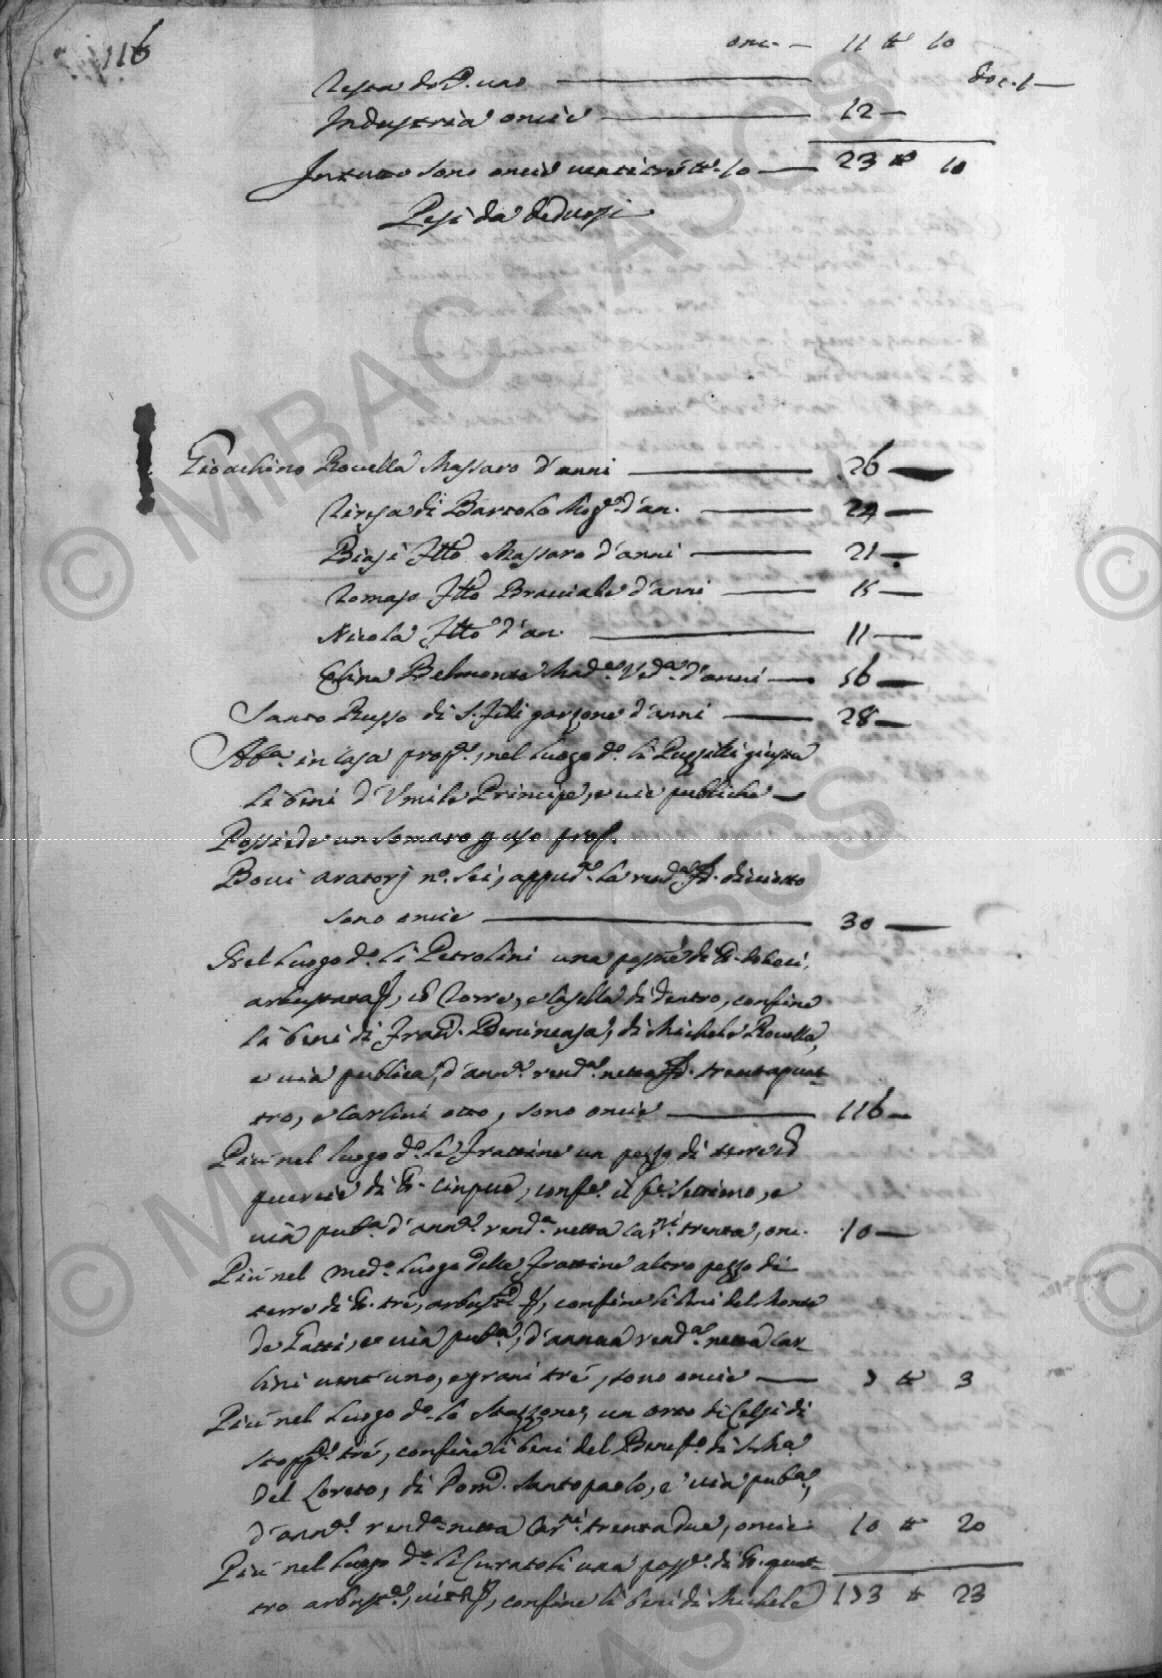 116
onc. — 11 tt 10
Testa do D. uno — doc. 1 —
Industria oncie — 12 —
In tutto sono oncie venti tré tt. 10 — 23 tt 10
Pesi da dedursi
Gioachino Rovella Massaro d'anni — 26 —
Teresa di Bartolo Mog.e d'an. — 24 —
Biasi ftto Massaro d'anni — 21 —
Tomaso ftto Bracciale d'anni — 15 —
Nicola ftto d'an. — 11 —
Elena Belmonte Mad.e Ved.a d'anni — 56 —
Santo Russo di S. Fili garzone d'anni — 28 —
Ab.a in casa prop.a, nel luogo d.o li Puzzilli giusta
li beni d'Umile Principe, e vie publiche —
Possiede un somaro p uso prop.
Bovi aratorj n.o sei, appud.o la rend.a di D. diciotto
sono oncie — 30 —
Nel luogo d.o li Petrolini una poss.ne di tt.
arbustata, cò Torre, e Casella di dentro, confine
li beni di Fran.o Benincasa, di Michele Rovella,
e via publica, d'ann.a rend.a netta D. trentaquat-
tro, e carlini otto, sono oncie — 116 —
Più nel luogo d.o le Frattine un pezzo di terre
quercie di tt. cinque, conf.e il settimo, e
via pub.a d'ann.a rend.a netta car.ni trenta, onc. 10 —
Più nel med.o luogo delle Frattine altro pezzo di
terre di tt. tré, arbust.o, confine li beni del Monte
de Fatti, e via pub.a, d'annua rend.a netta car-
lini vent'uno, e grani tré, sono oncie — 7 tt 3
Più nel luogo d.o lo Stazzone, un orto di Celsi di
stopp.e tré, confine li beni del Benef.o di S. M.a
del Loreto, di Dom.o Santopaolo, e via pub.a,
d'ann.a rend.a netta Car.ni trentadue, oncie 10 tt 20
Più nel luogo d.o li Curatoli una poss.e di tt. quat-
tro arbust.e, vitat, confine li beni di Michele 173 tt 23
© MIBAC - ASCS
© MIBAC - ASCS